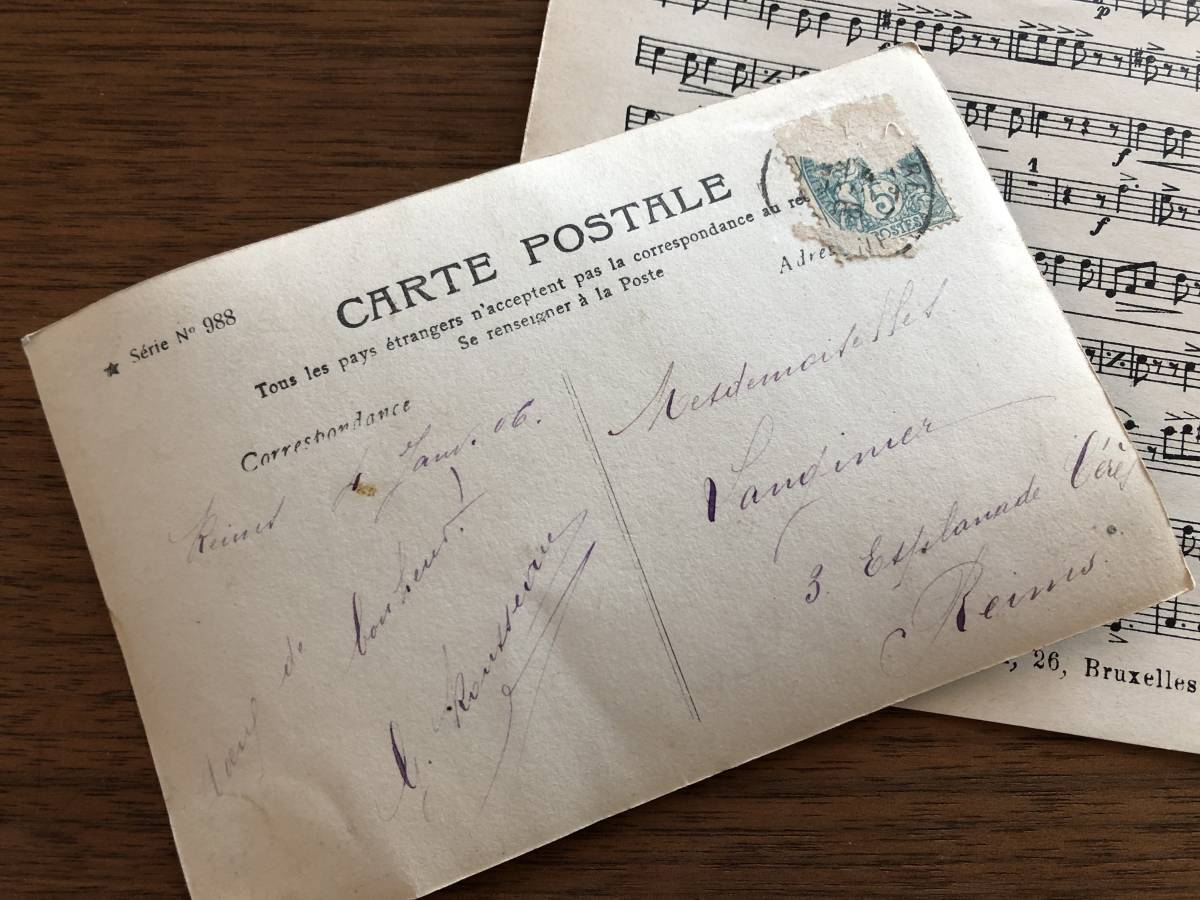 ★ Série Nº 988
CARTE POSTALE
Tous les pays étrangers n'acceptent pas la correspondance au re
Se renseigner à la Poste
Correspondance
Reims 4 Janv. 06.
de bonheur!
Adres
Mesdemoiselles
3. Esplanade Cérès
Reims.
5
POSTES
p
f
1
f
f
26, Bruxelles